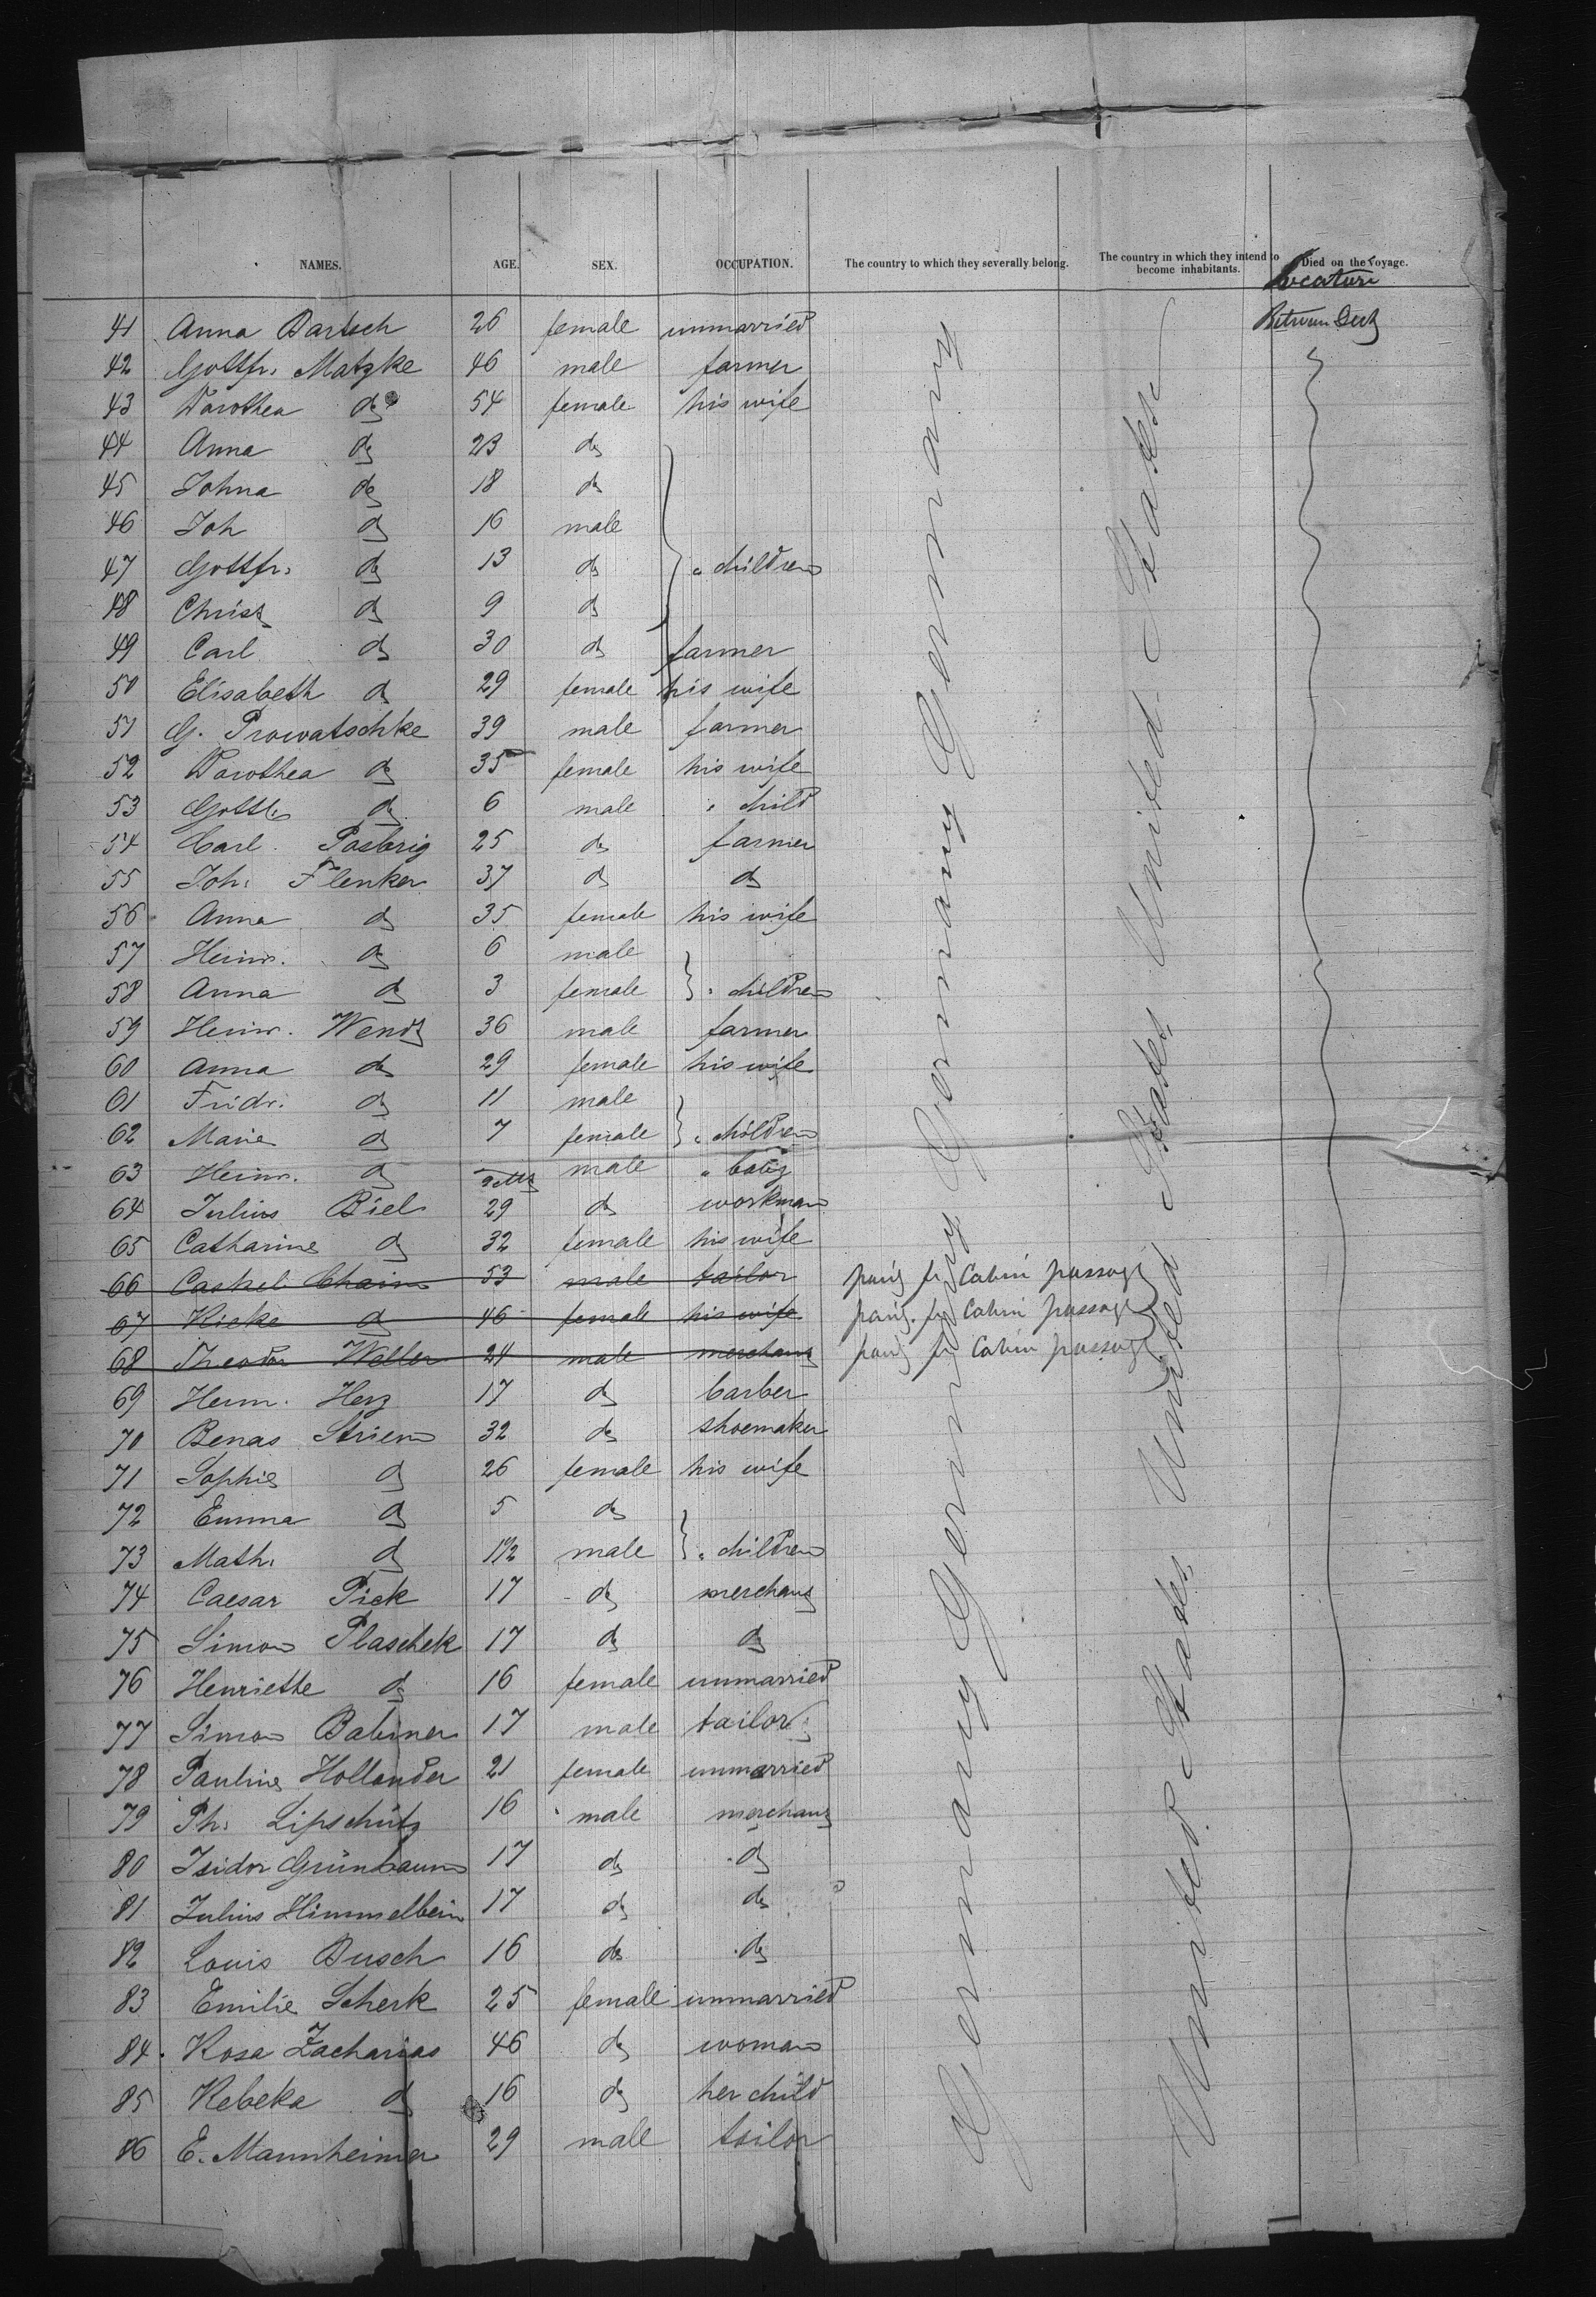 NAMES. AGE. SEX. OCCUPATION. The country to which they severally belong. The country in which they intend to become inhabitants. Died on the voyage.
Location
41 Anna Bartsch 26 female unmarried Between Deck
42 Gottfr. Matzke 46 male farmer
43 Dorothea do 54 female his wife
44 Anna do 23 do
45 Johna do 18 do
46 Joh do 16 male
47 Gottfr. do 13 do " children
48 Christ do 9 do
49 Carl do 30 do farmer
50 Elisabeth do 29 female his wife
51 G. Prowatschke 39 male farmer
52 Dorothea do 35 female his wife
53 Gottl. do 6 male " child
54 Carl Posbrig 25 do farmer
55 Joh. Flenker 37 do do
56 Anna do 35 female his wife
57 Heinr. do 6 male
58 Anna do 3 female " children
59 Heinr. Wendt 36 male farmer
60 Anna do 29 female his wife
61 Fridr. do 11 male
62 Marie do 7 female " children
63 Heinr. do male " baby
64 Julius Biel 29 do workman
65 Catharine do 32 female his wife
66 Caskel Chaim 53 male tailor paid for Cabin passage
67 Rieke do 46 female his wife paid for Cabin passage
68 Theodor Weller 24 male merchant paid for Cabin passage
69 Herm. Herz 17 do barber
70 Benas Striem 32 do shoemaker
71 Sophie do 26 female his wife
72 Emma do 5 do
73 Math. do 1 1/2 male " children
74 Caesar Pick 17 do merchant
75 Simon Plaschek 17 do do
76 Henriette do 16 female unmarried
77 Simon Babiner 17 male tailor
78 Pauline Hollander 21 female unmarried
79 Ph. Lipschütz 16 male merchant
80 Isidor Grünbaum 17 do do
81 Julius Himmelbein 17 do do
82 Louis Busch 16 do do
83 Emilie Scherk 25 female unmarried
84 Rosa Zacharias 46 do woman
85 Rebeka do 16 do her child
86 E. Mannheimer 29 male tailor
Germany Germany Germany Germany
United States United States United States